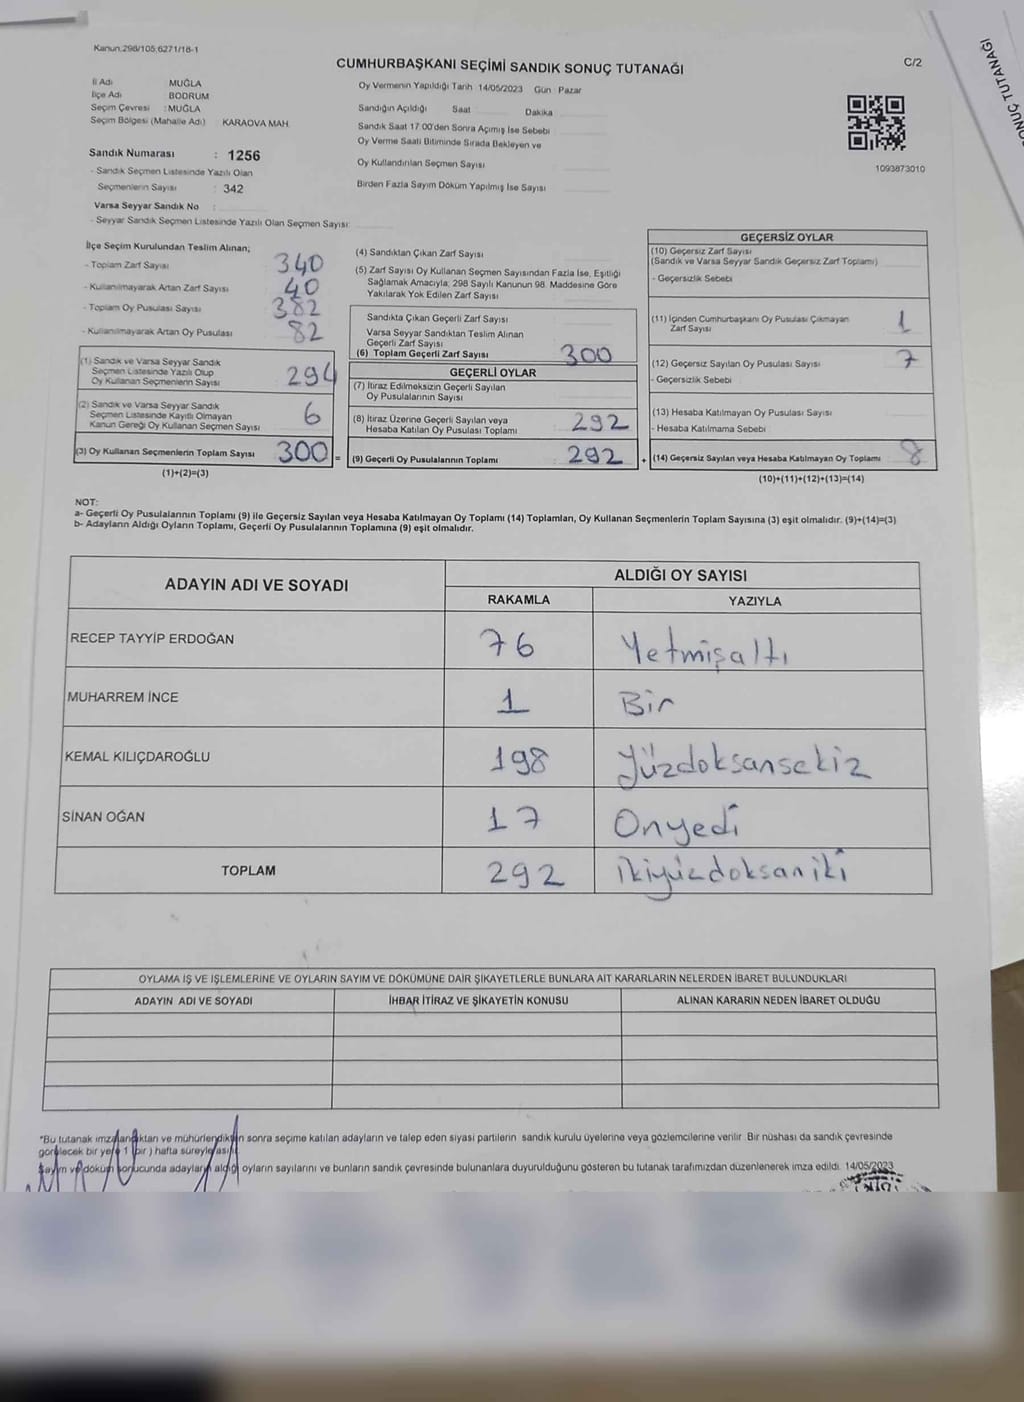 Kanun:298/105;6271/18-1
CUMHURBAŞKANI SEÇİMİ SANDIK SONUÇ TUTANAĞI
C/2
ONUÇ TUTANAĞI
İl Adı MUĞLA
İlçe Adı BODRUM
Seçim Çevresi : MUĞLA
Seçim Bölgesi (Mahalle Adı) KARAOVA MAH.
Sandık Numarası : 1256
- Sandık Seçmen Listesinde Yazılı Olan
Seçmenlerin Sayısı : 342
Varsa Seyyar Sandık No :
- Seyyar Sandık Seçmen Listesinde Yazılı Olan Seçmen Sayısı:
Oy Vermenin Yapıldığı Tarih 14/05/2023 Gün : Pazar
Sandığın Açıldığı Saat Dakika
Sandık Saat 17:00'den Sonra Açımış İse Sebebi
Oy Verme Saati Bitiminde Sırada Bekleyen ve
Oy Kullandırılan Seçmen Sayısı
Birden Fazla Sayım Döküm Yapılmış İse Sayısı
1093873010
İlçe Seçim Kurulundan Teslim Alınan;
- Toplam Zarf Sayısı 340
- Kullanılmayarak Artan Zarf Sayısı 40
- Toplam Oy Pusulası Sayısı 382
- Kullanılmayarak Artan Oy Pusulası 82
(1) Sandık ve Varsa Seyyar Sandık
Seçmen Listesinde Yazılı Olup
Oy Kullanan Seçmenlerin Sayısı 294
(2) Sandık ve Varsa Seyyar Sandık
Seçmen Listesinde Kayıtlı Olmayan
Kanun Gereği Oy Kullanan Seçmen Sayısı 6
(3) Oy Kullanan Seçmenlerin Toplam Sayısı 300 =
(1)+(2)=(3)
(4) Sandıktan Çıkan Zarf Sayısı
(5) Zarf Sayısı Oy Kullanan Seçmen Sayısından Fazla İse, Eşitliği
Sağlamak Amacıyla, 298 Sayılı Kanunun 98. Maddesine Göre
Yakılarak Yok Edilen Zarf Sayısı
Sandıkta Çıkan Geçerli Zarf Sayısı
Varsa Seyyar Sandıktan Teslim Alınan
Geçerli Zarf Sayısı
(6) Toplam Geçerli Zarf Sayısı 300
GEÇERLİ OYLAR
(7) İtiraz Edilmeksizin Geçerli Sayılan
Oy Pusulalarının Sayısı
(8) İtiraz Üzerine Geçerli Sayılan veya
Hesaba Katılan Oy Pusulası Toplamı 292
(9) Geçerli Oy Pusulalarının Toplamı 292 +
GEÇERSİZ OYLAR
(10) Geçersiz Zarf Sayısı
(Sandık ve Varsa Seyyar Sandık Geçersiz Zarf Toplamı)
- Geçersizlik Sebebi
(11) İçinden Cumhurbaşkanı Oy Pusulası Çıkmayan
Zarf Sayısı 1
(12) Geçersiz Sayılan Oy Pusulası Sayısı 7
- Geçersizlik Sebebi
(13) Hesaba Katılmayan Oy Pusulası Sayısı
- Hesaba Katılmama Sebebi
(14) Geçersiz Sayılan veya Hesaba Katılmayan Oy Toplamı 8
(10)+(11)+(12)+(13)=(14)
NOT:
a- Geçerli Oy Pusulalarının Toplamı (9) ile Geçersiz Sayılan veya Hesaba Katılmayan Oy Toplamı (14) Toplamları, Oy Kullanan Seçmenlerin Toplam Sayısına (3) eşit olmalıdır. (9)+(14)=(3)
b- Adayların Aldığı Oyların Toplamı, Geçerli Oy Pusulalarının Toplamına (9) eşit olmalıdır.
ADAYIN ADI VE SOYADI
ALDIĞI OY SAYISI
RAKAMLA YAZIYLA
RECEP TAYYİP ERDOĞAN 76 Yetmişaltı
MUHARREM İNCE 1 Bir
KEMAL KILIÇDAROĞLU 198 Yüzdoksansekiz
SİNAN OĞAN 17 Onyedi
TOPLAM 292 ikiyüzdoksaniki
OYLAMA İŞ VE İŞLEMLERİNE VE OYLARIN SAYIM VE DÖKÜMÜNE DAİR ŞİKAYETLERLE BUNLARA AİT KARARLARIN NELERDEN İBARET BULUNDUKLARI
ADAYIN ADI VE SOYADI İHBAR İTİRAZ VE ŞİKAYETİN KONUSU ALINAN KARARIN NEDEN İBARET OLDUĞU
*Bu tutanak imzalandıktan ve mühürlendikten sonra seçime katılan adayların ve talep eden siyasi partilerin sandık kurulu üyelerine veya gözlemcilerine verilir. Bir nüshası da sandık çevresinde
görülecek bir yere 1 (bir) hafta süreyle asılır.
Sayım ve döküm sonucunda adayların aldığı oyların sayılarını ve bunların sandık çevresinde bulunanlara duyurulduğunu gösteren bu tutanak tarafımızdan düzenlenerek imza edildi. 14/05/2023